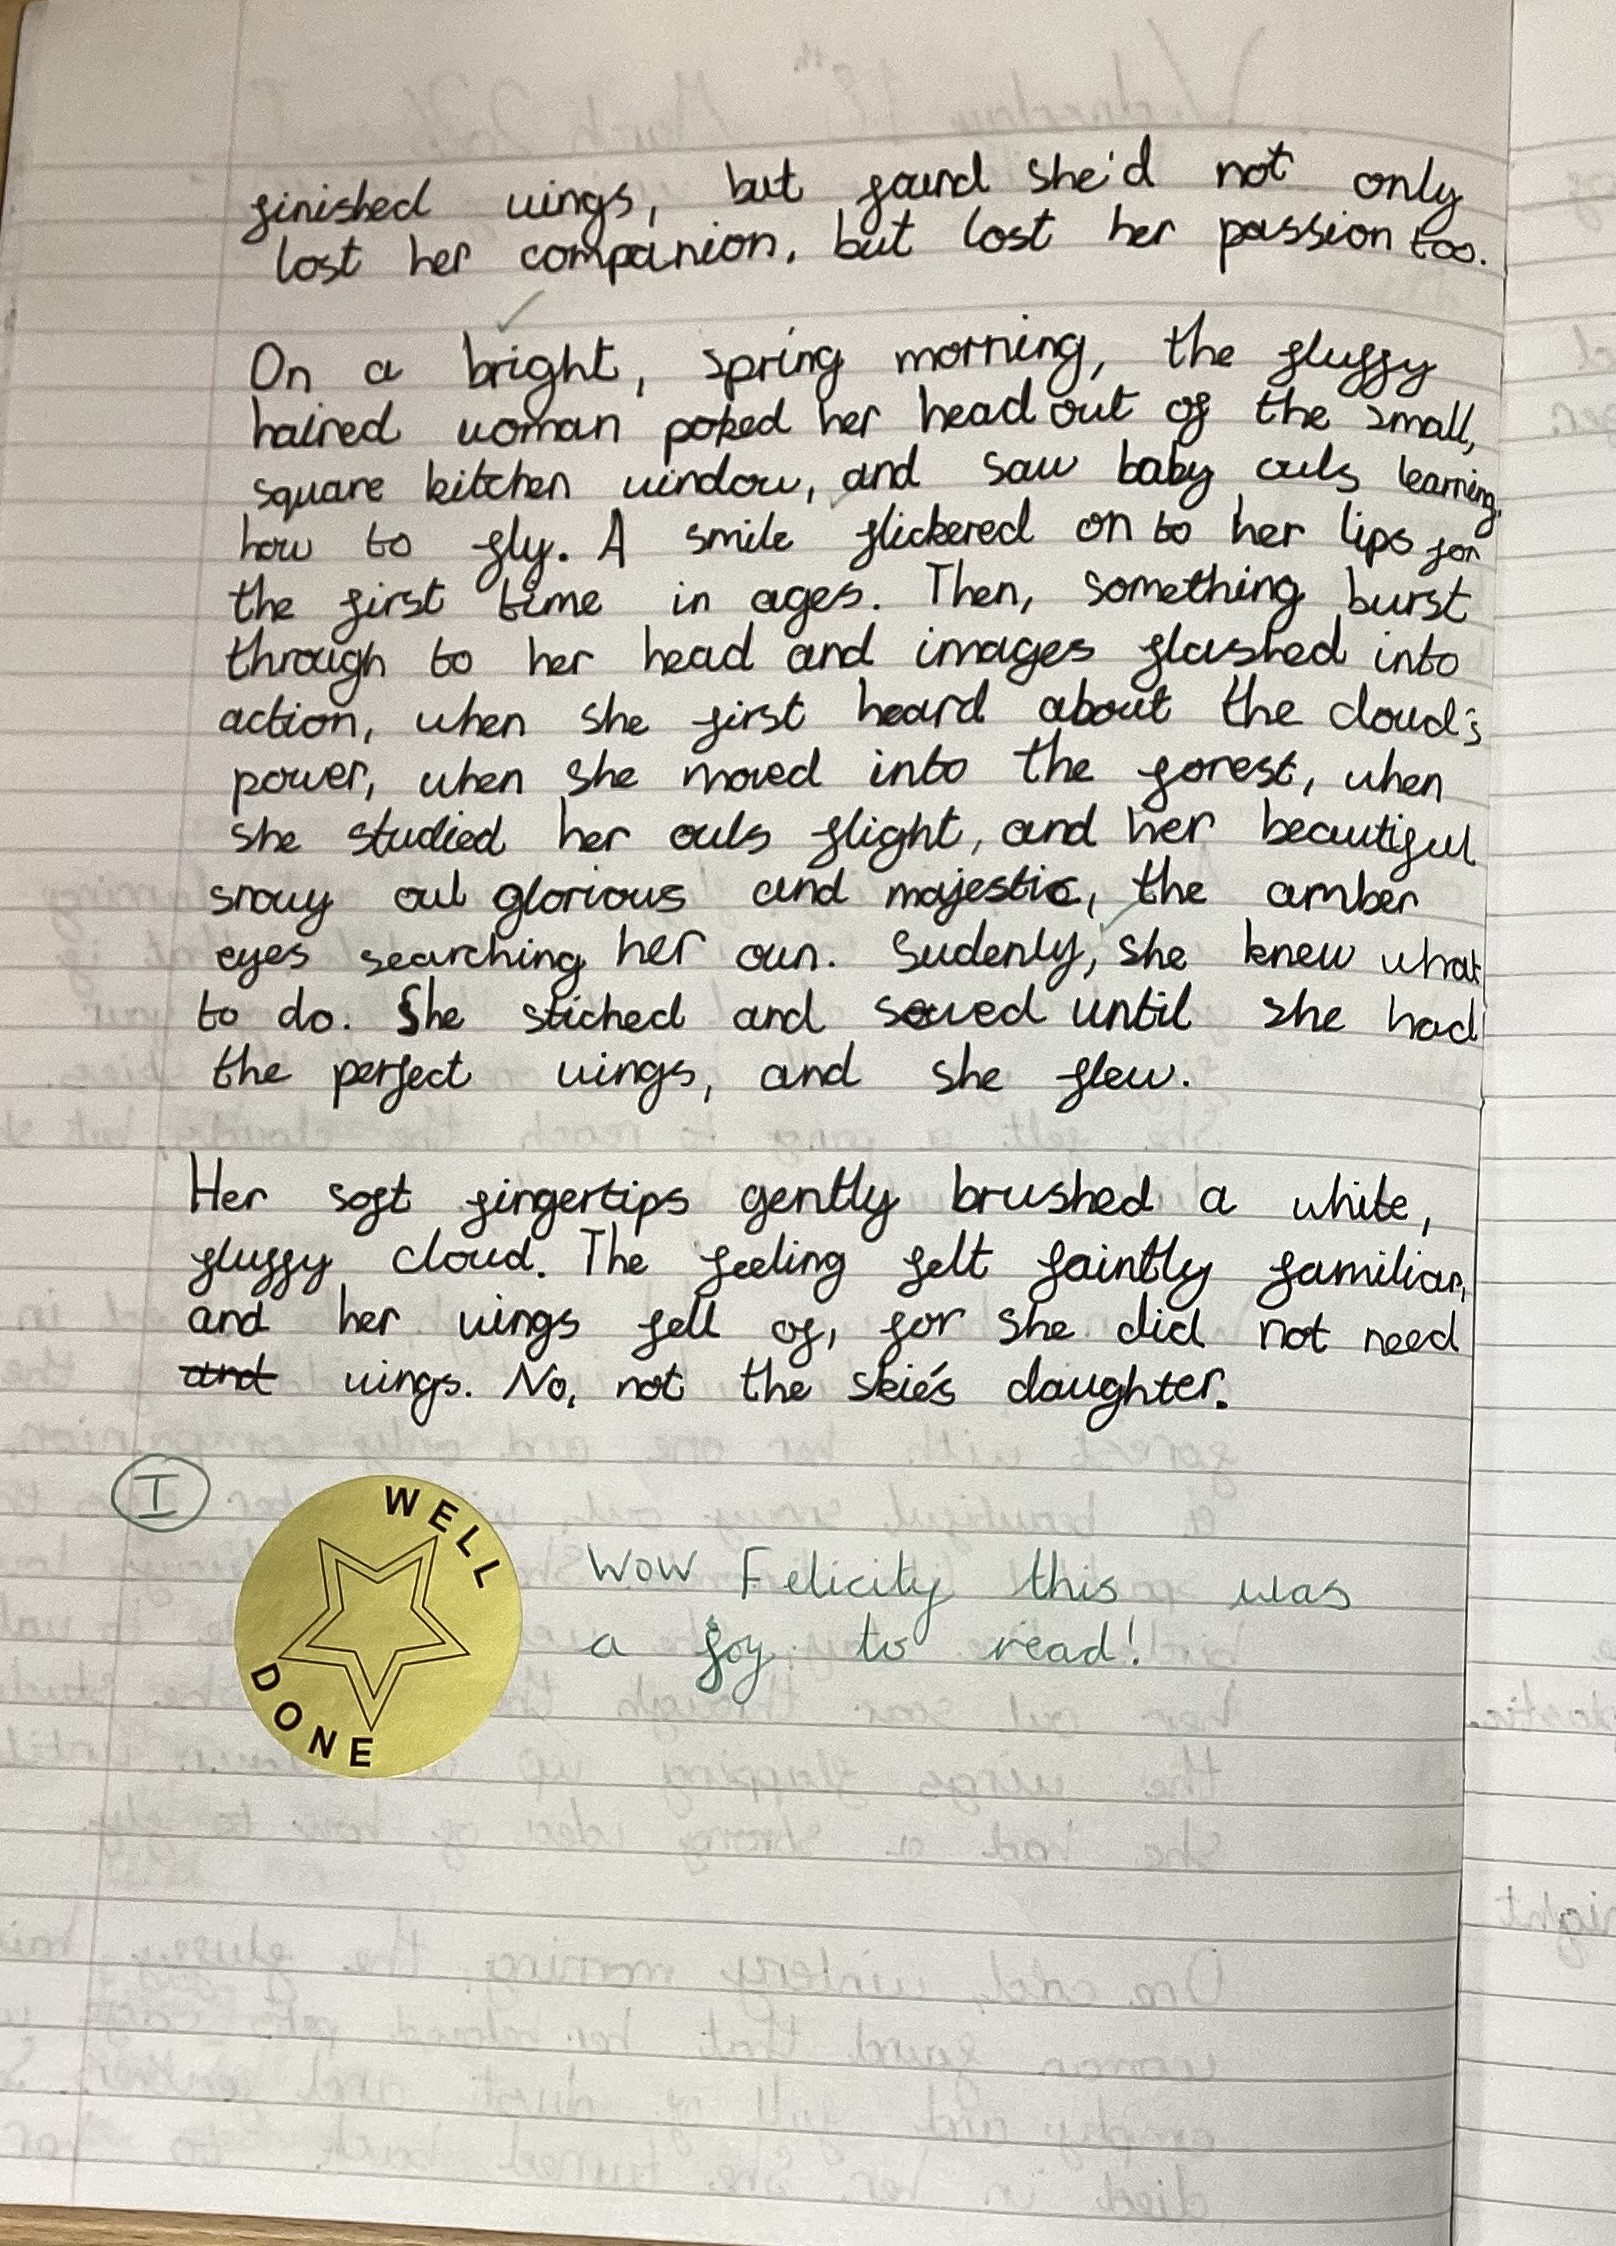 finished wings, but found she'd not only
lost her companion, but lost her passion too.
On a bright, spring morning, the fluffy
haired woman poked her head out of the small,
square kitchen window, and saw baby owls learning
how to fly. A smile flickered on to her lips for
the first time in ages. Then, something burst
through to her head and images flashed into
action, when she first heard about the cloud's
power, when she moved into the forest, when
she studied her owls flight, and her beautiful
snowy owl glorious and majestic, the amber
eyes searching her own. Sudenly, she knew what
to do. She stiched and sowed until she had
the perfect wings, and she flew.
Her soft fingertips gently brushed a white,
fluffy cloud. The feeling felt faintly familiar,
and her wings fell of, for she did not need
and wings. No, not the skie's daughter.
I
WELL DONE
Wow Felicity this was
a joy to read!